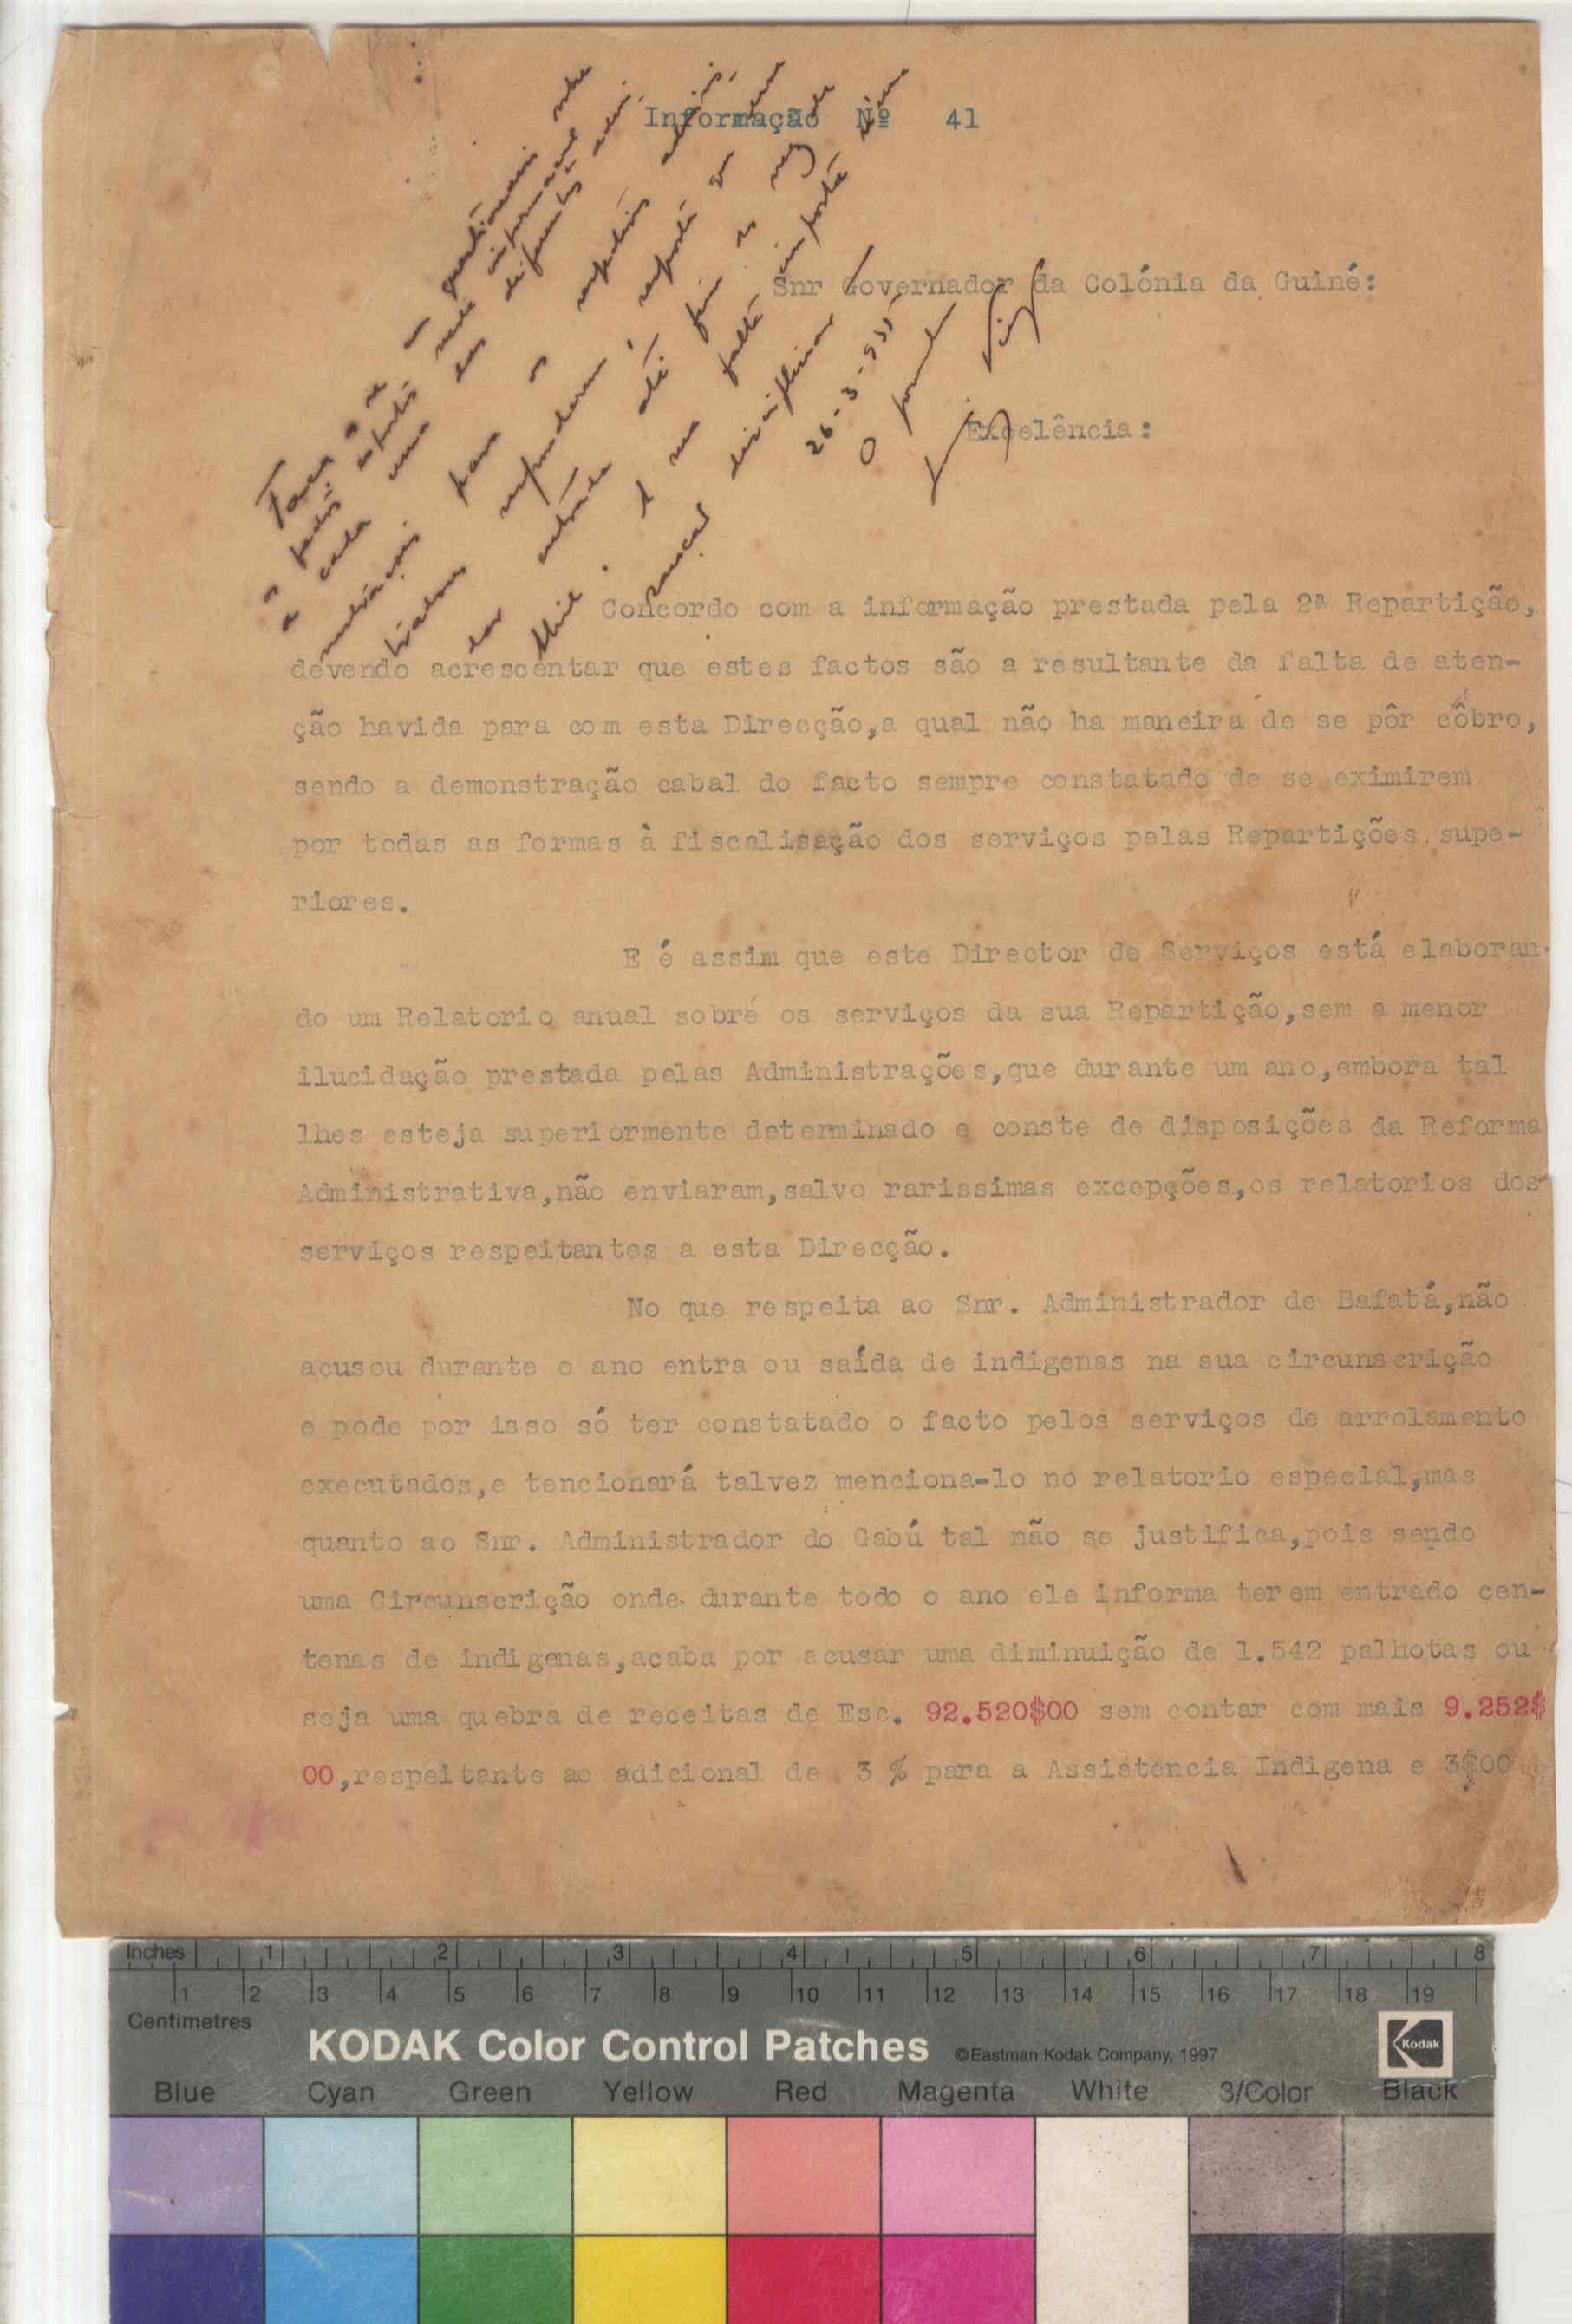 Informação Nº 41
Snr Governador da Colónia da Guiné:
Excelência:
Faça-se um questionario sobre
os pontos deste informação
a cada uma das diferentes admi-
nistrações para os respectivos adminis-
tradores responderem; resposta em
dar entrada até fim do mez de
Abril. A sua falta importa numa
sanção disciplinar
26-3-935
O
Concordo com a informação prestada pela 2ª Repartição,
devendo acrescentar que estes factos são a resultante da falta de aten-
ção havida para com esta Direcção,a qual não ha maneira de se pôr côbro,
sendo a demonstração cabal do facto sempre constatado de se eximirem
por todas as formas à fiscalisação dos serviços pelas Repartições supe-
riores.
E é assim que este Director de Serviços está elaboran-
do um Relatorio anual sobre os serviços da sua Repartição,sem a menor
ilucidação prestada pelas Administrações,que durante um ano,embora tal
lhes esteja superiormente determinado e conste de disposições da Reforma
Administrativa,não enviaram,salvo rarissimas excepções,os relatorios dos
serviços respeitantes a esta Direcção.
No que respeita ao Snr. Administrador de Bafatá,não
acusou durante o ano entra ou saída de indigenas na sua circunscrição
e pode por isso só ter constatado o facto pelos serviços de arrolamento
executados,e tencionará talvez menciona-lo no relatorio especial,mas
quanto ao Snr. Administrador do Gabú tal não se justifica,pois sendo
uma Circunscrição onde durante todo o ano ele informa terem entrado cen-
tenas de indigenas,acaba por acusar uma diminuição de 1.542 palhotas ou
seja uma quebra de receitas de Esc. 92.520$00 sem contar com mais 9.252$
00,respeitante ao adicional de 3 % para a Assistencia Indigena e 3$00
Inches 1 2 3 4 5 6 7 8
1 2 3 4 5 6 7 8 9 10 11 12 13 14 15 16 17 18 19
Centimetres
KODAK Color Control Patches ©Eastman Kodak Company, 1997 Kodak
Blue Cyan Green Yellow Red Magenta White 3/Color Black